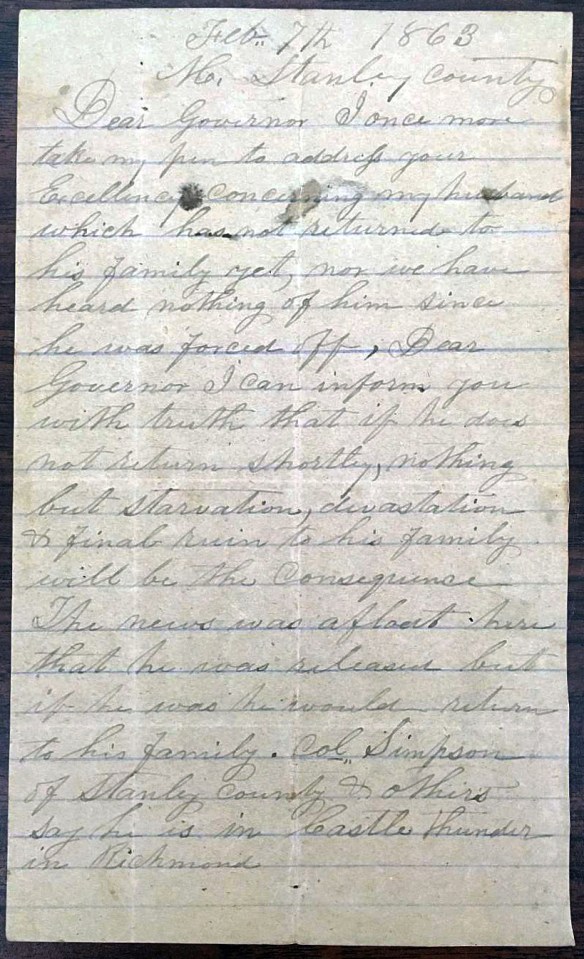 Feb.. 7th 1863
N. Stanley county
Dear Governor I once more
take my pen to address your
Excellency concerning my husband
which has not returned to
his family yet, nor we have
heard nothing of him since
he was forced off, Dear
Governor I can inform you
with truth that if he does
not return shortly, nothing
but starvation, devastation
& final ruin to his family
will be the consequence
The news was afloat here
that he was released but
if he was he would return
to his family. Col.. Simpson
of Stanly county & others
say he is in Castle thunder
in Richmond